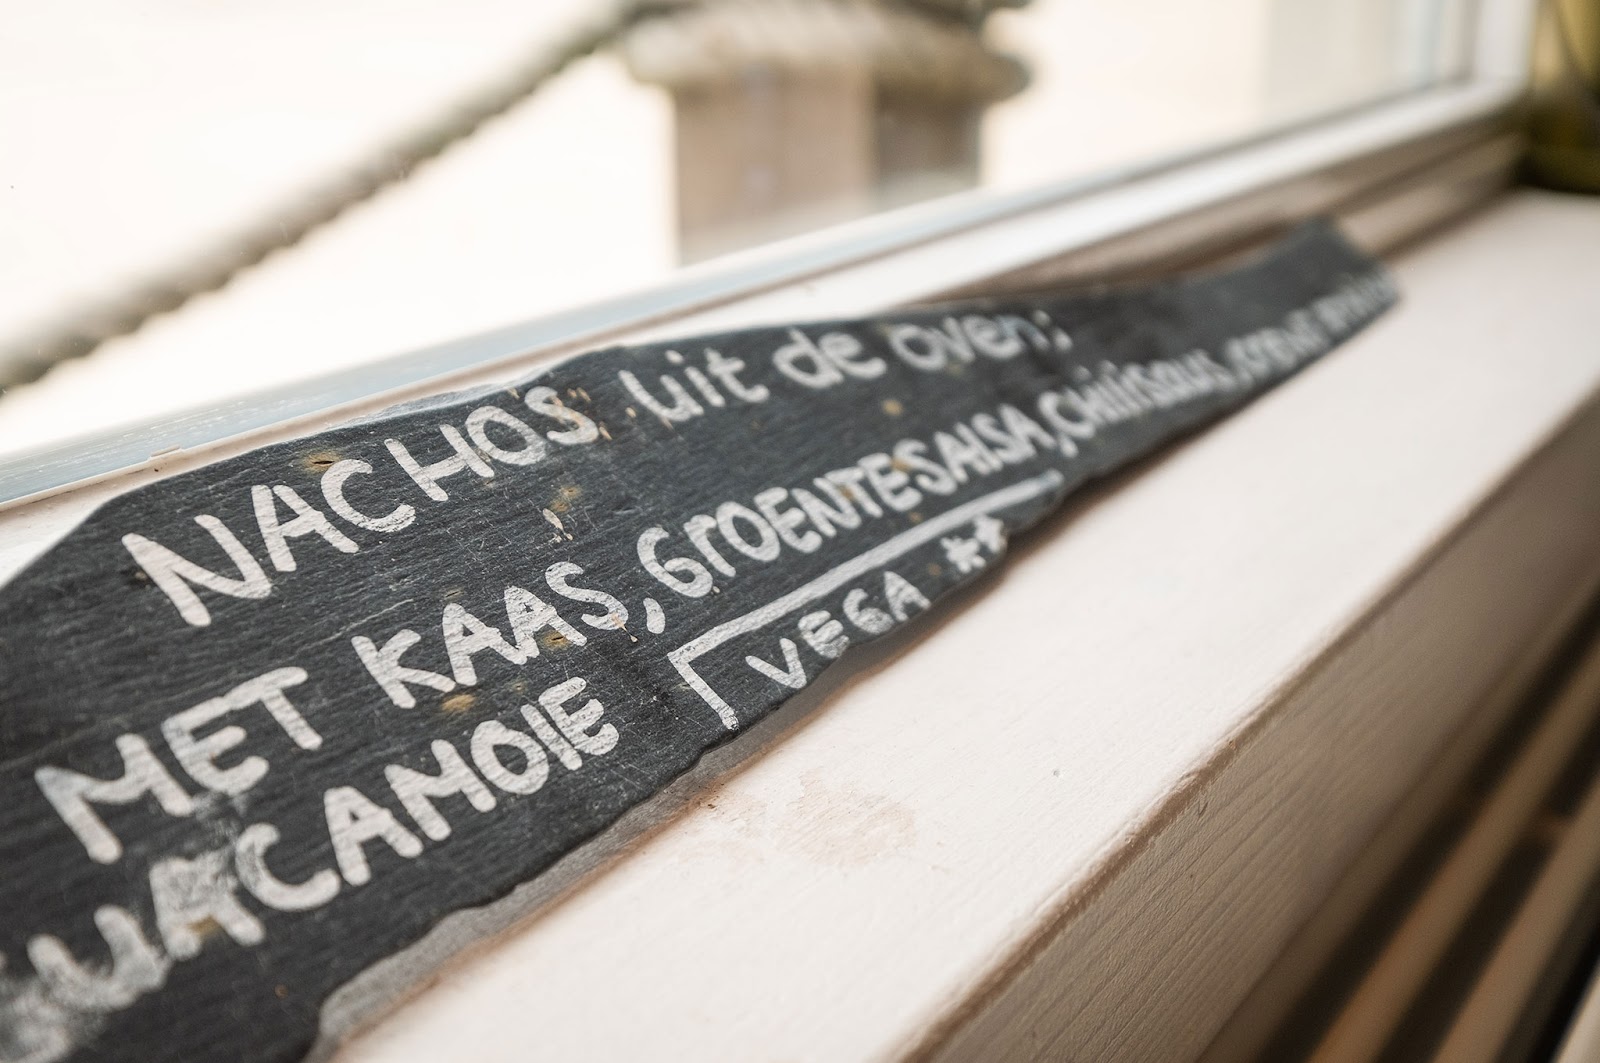 NACHOS uit de oven:
MET KAAS, GROENTESALSA, CHilliSaus,
GUACAMOIE
VEGA **